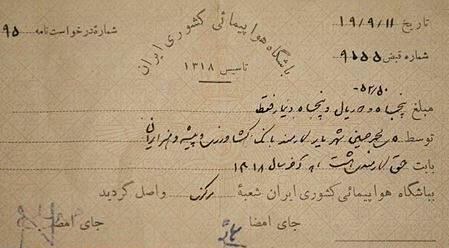 تاریخ ۱۹/۹/۱۱
شماره درخواست نامه ۹۵
باشگاه هواپیمائی کشوری ایران
شماره قبض ۹۱۵۵
تاسیس ۱۳۱۸
۵۲/۵۰
مبلغ پنجاه و دو ریال و پنجاه دینار فقط
توسط محمدحسین شهریار کارمند بانک کشاورزی و پیشه و هنر ایران
بابت حق کارمندی ۸ ۱۸
بباشگاه هواپیمائی کشوری ایران شعبهٔ مرکز واصل گردید
جای امضا جای امضا